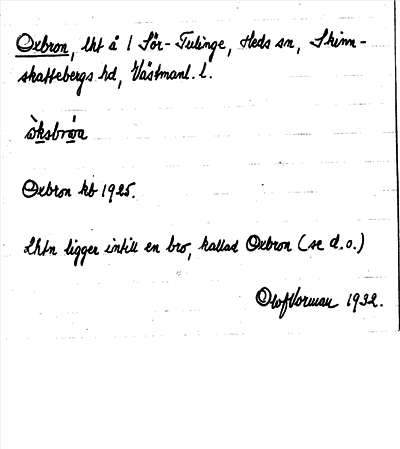 Oxbron, lht å 1 Sör-Tulinge, Heds sn, Skinn-
skattebergs hd, Västmanl. l.
òksbróa
Oxbron kb 1925.
Lhtn ligger intill en bro, kallad Oxbron (se d.o.)
Olof Vorman 1932.